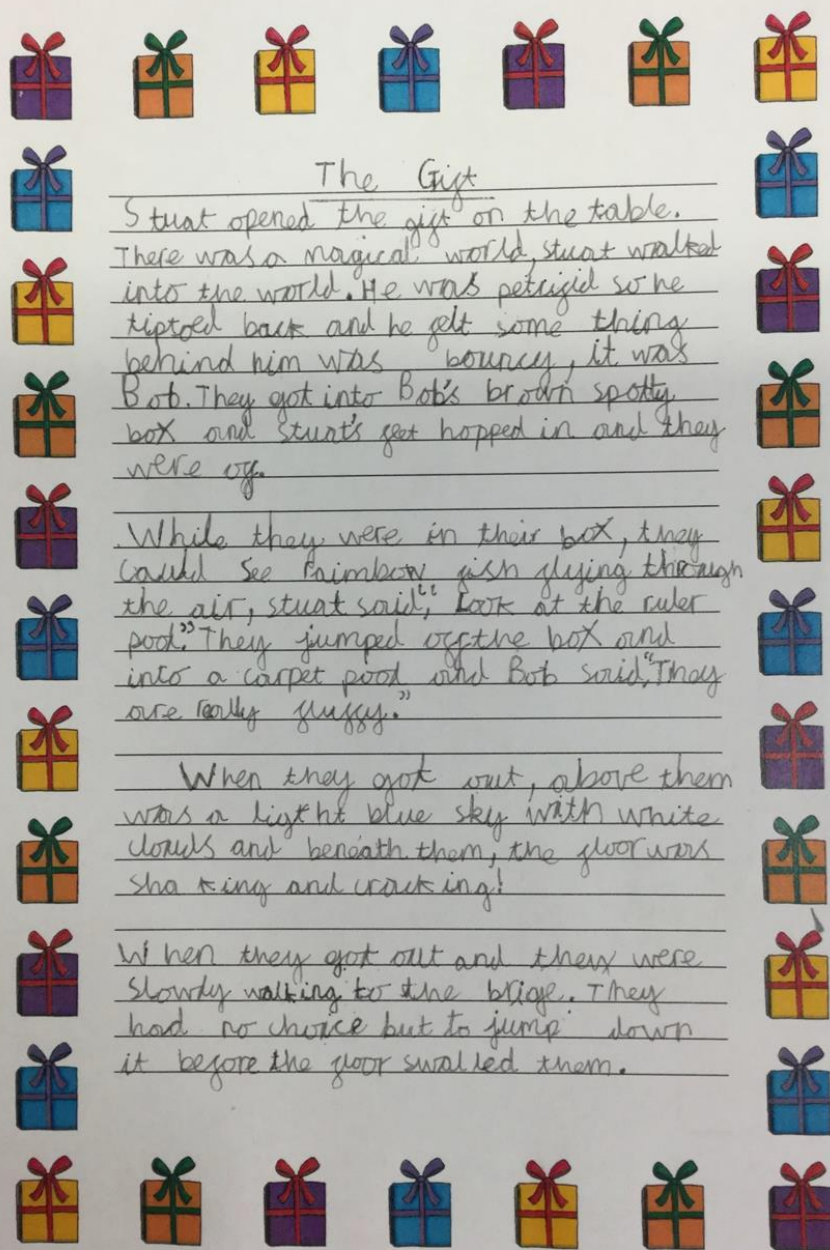 The Gift
Stuat opened the gift on the table.
There was a magical world, stuat walked
into the world. He was petrifid so he
tiptoed back and he felt some thing
behind him was bouncy, it was
Bob. They got into Bob's brown spotty
box and stuat's feet hopped in and they
were off.
While they were in their box, they
could see Raimbow fish flying through
the air, stuat said," Look at the ruler
pool." They jumped off the box and
into a carpet pool and Bob said,"They
are really fluffy."
When they got out, above them
was a light blue sky with white
clouds and beneath them, the floor was
shaking and cracking!
When they got out and they were
slowly walking to the brige. They
had no choice but to jump down
it before the floor swalled them.